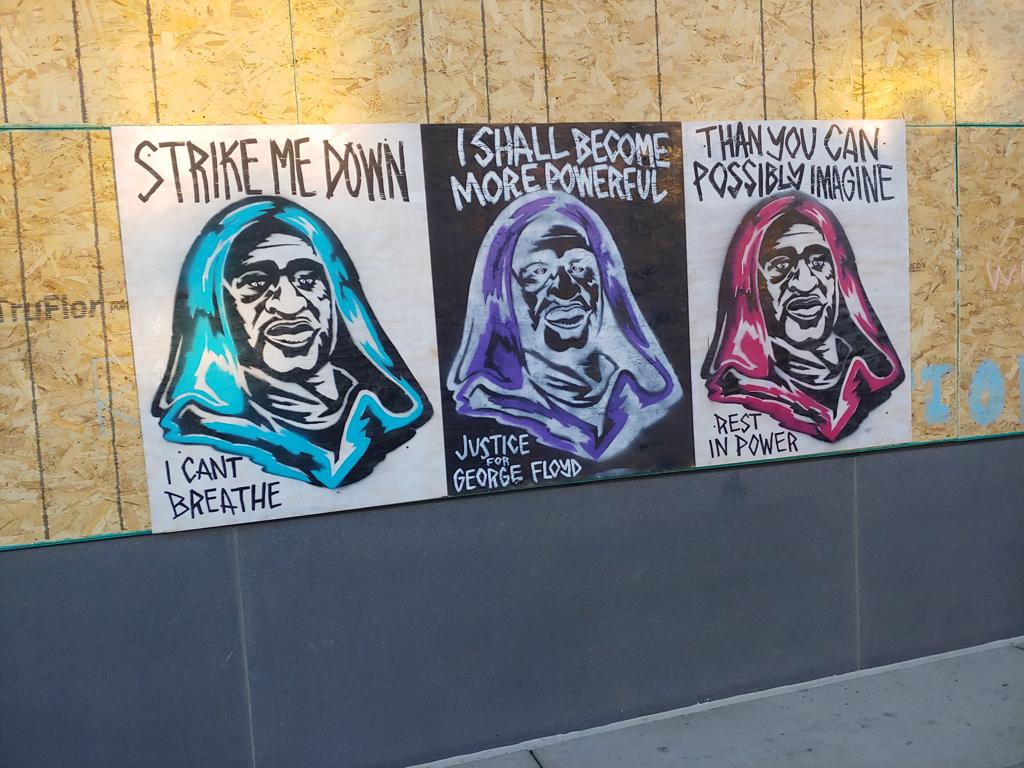 STRIKE ME DOWN
I CANT
BREATHE
I SHALL BECOME
MORE POWERFUL
JUSTICE
FOR
GEORGE FLOYD
THAN YOU CAN
POSSIBLY IMAGINE
REST
IN POWER
TruFlor